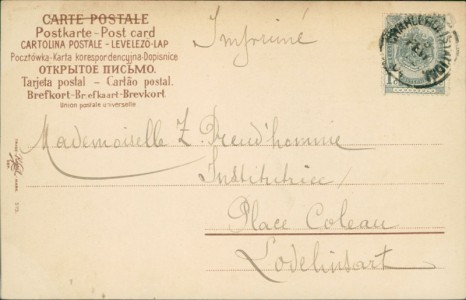 CARTE POSTALE
Postkarte - Post card
CARTOLINA POSTALE - LEVELEZŐ-LAP
Pocztówka - Karta korespondencyjna - Dopisnice
ОТКРЫТОЕ ПИСЬМО.
Tarjeta postal - Cartão postal.
Brefkort - Briefkaart - Brevkort
Union postale universelle
Imprimé
Mademoiselle Z. Preud'homme
Institutrice
Place Coleau
Lodelinsart